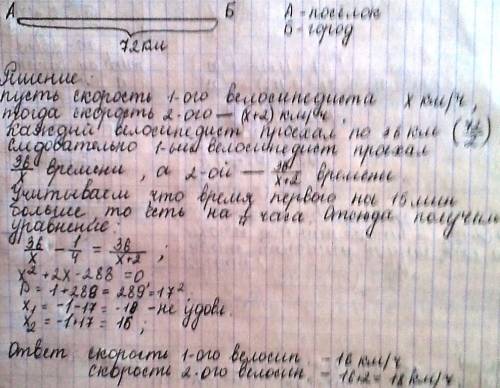 А Б А - посёлок
72 км Б - город
Решение:
пусть скорость 1-ого велосипедиста х км/ч,
тогда скорость 2-ого — (х+2) км/ч.
Каждый велосипедист проехал по 36 км (72/2)
следовательно 1-ый велосипедист проехал
36/x времени, а 2-ой — 36/x+2 времени
Учитываем что время первого на 15 мин
больше, то есть на 1/4 часа. Отсюда получим
уравнение:
36/x - 1/4 = 36/x+2 ;
x² + 2x - 288 = 0
D = 1 + 288 = 289 = 17²
x₁ = -1 - 17 = -18 - не удовл.
x₂ = -1 + 17 = 16 ;
Ответ: скорость 1-ого велосип. = 16 км/ч
скорость 2-ого велосип. = 16+2 = 18 км/ч